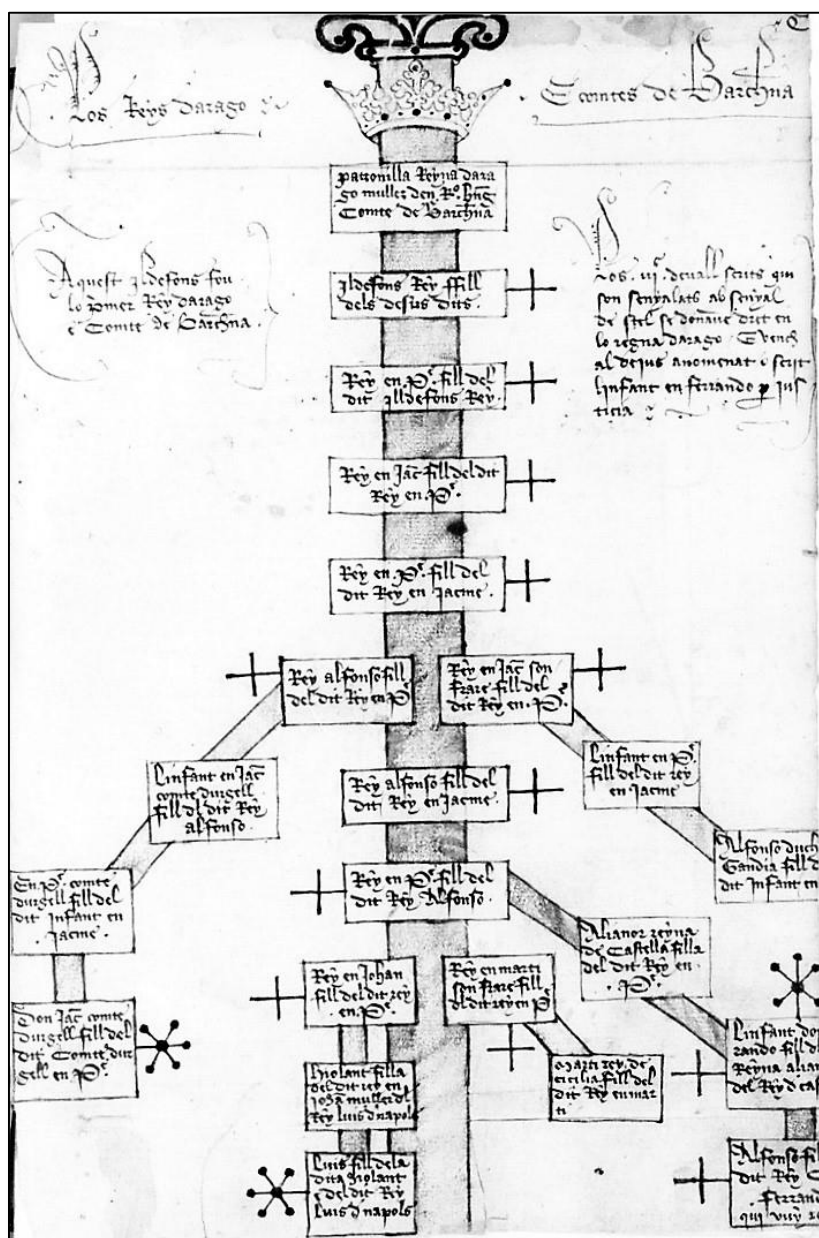 Los Reys darago
Ecomtes de Barchna
patronilla Reyna dara
go muller den Rº. bng
Comte de Barchna
Aquest ildefons fou
lo pmer Rey darago
e Comte de Barchna.
ildefons Rey ffill
dels desus dits.
Los. vj. devall scrits qui
son senyalats ab senyal
de stel se donave dret en
lo regna darago. E vench
al dejus anomenat e scrit
linfant en ferrando p jus
ticia
Rey en Pe. fill del
dit ildefons Rey
Rey en Jac fill del dit
Rey en Pe.
Rey en Pe. fill del
dit Rey en jacme.
Rey alfonso fill
del dit Rey en Pe
Rey en Jac son
frare fill del
dit Rey en. Pe
Linfant en Jac
comte durgell
fill dl dit Rey
alfonso.
Rey alfonso fill del
dit Rey en jacme.
Linfant en Pe.
fill del dit rey
en jacme
Alfonso duch
Gandia fill d
dit infant en
En Pe. comte
durgell fill del
dit infant en
jacme.
Rey en Pe. fill del
dit Rey Alfonso.
Alianor reyna
de Castella filla
del dit Rey en
Pe.
Don Jac comte
durgell fill del
dit Comte dur
gell en Pe.
Rey en Johan
fill del dit rey
en Pe.
Rey en marti
son frare fill
dl dit rey en Pe
Linfant do
rando fill d
Reyna alian
del Rey d cas
hiolant filla
del dit rey en
johan muller dl
Rey luis d napols
marti rey. de
cicilia fill del
dit Rey en mar
ti
Luis fill dela
dita hiolant
e del dit Rey
Luis d napols
Alfonso fil
dit Rey
Ferran
qui vuy re